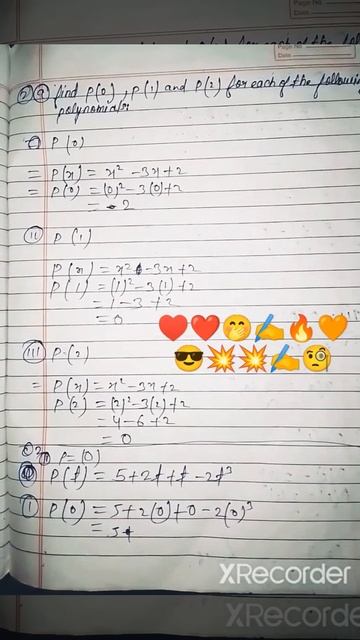 Page No.
Date
② ⓐ find P(0), P(1) and P(2) for each of the following
polynomials
① P(0)
= P(x) = x² - 3x + 2
= P(0) = (0)² - 3(0) + 2
= 2
ⅱ P(1)
P(x) = x² - 3x + 2
P(1) = (1)² - 3(1) + 2
= 1 - 3 + 2
= 0
ⅲ P(2)
= P(x) = x² - 3x + 2
P(2) = (2)² - 3(2) + 2
= 4 - 6 + 2
= 0
P = (0)
P(t) = 5 + 2t + t - 2t³
① P(0) = 5 + 2(0) + 0 - 2(0)³
= 5
XRecorder
XRecorder